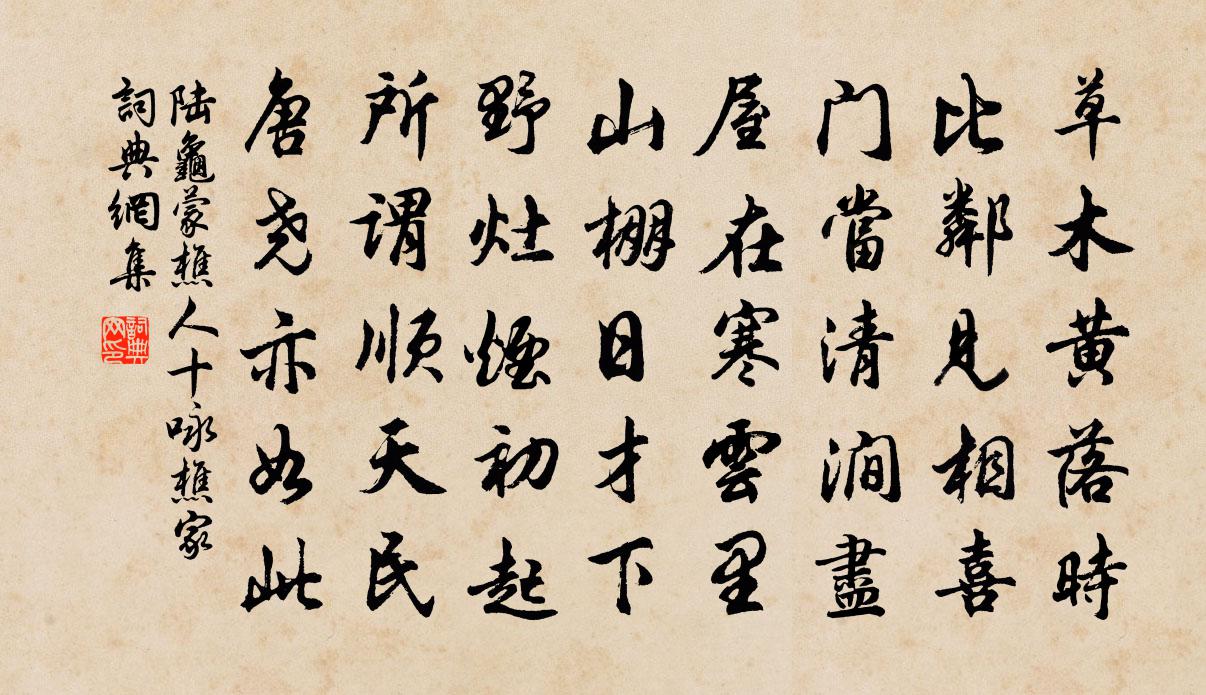 草木黄落時
比鄰見相喜
门當清澗盡
屋在寒雲里
山棚日才下
野灶煙初起
所謂順天民
唐尧亦如此
陆龜蒙樵人十咏樵家
詞典網集
詞典
网印